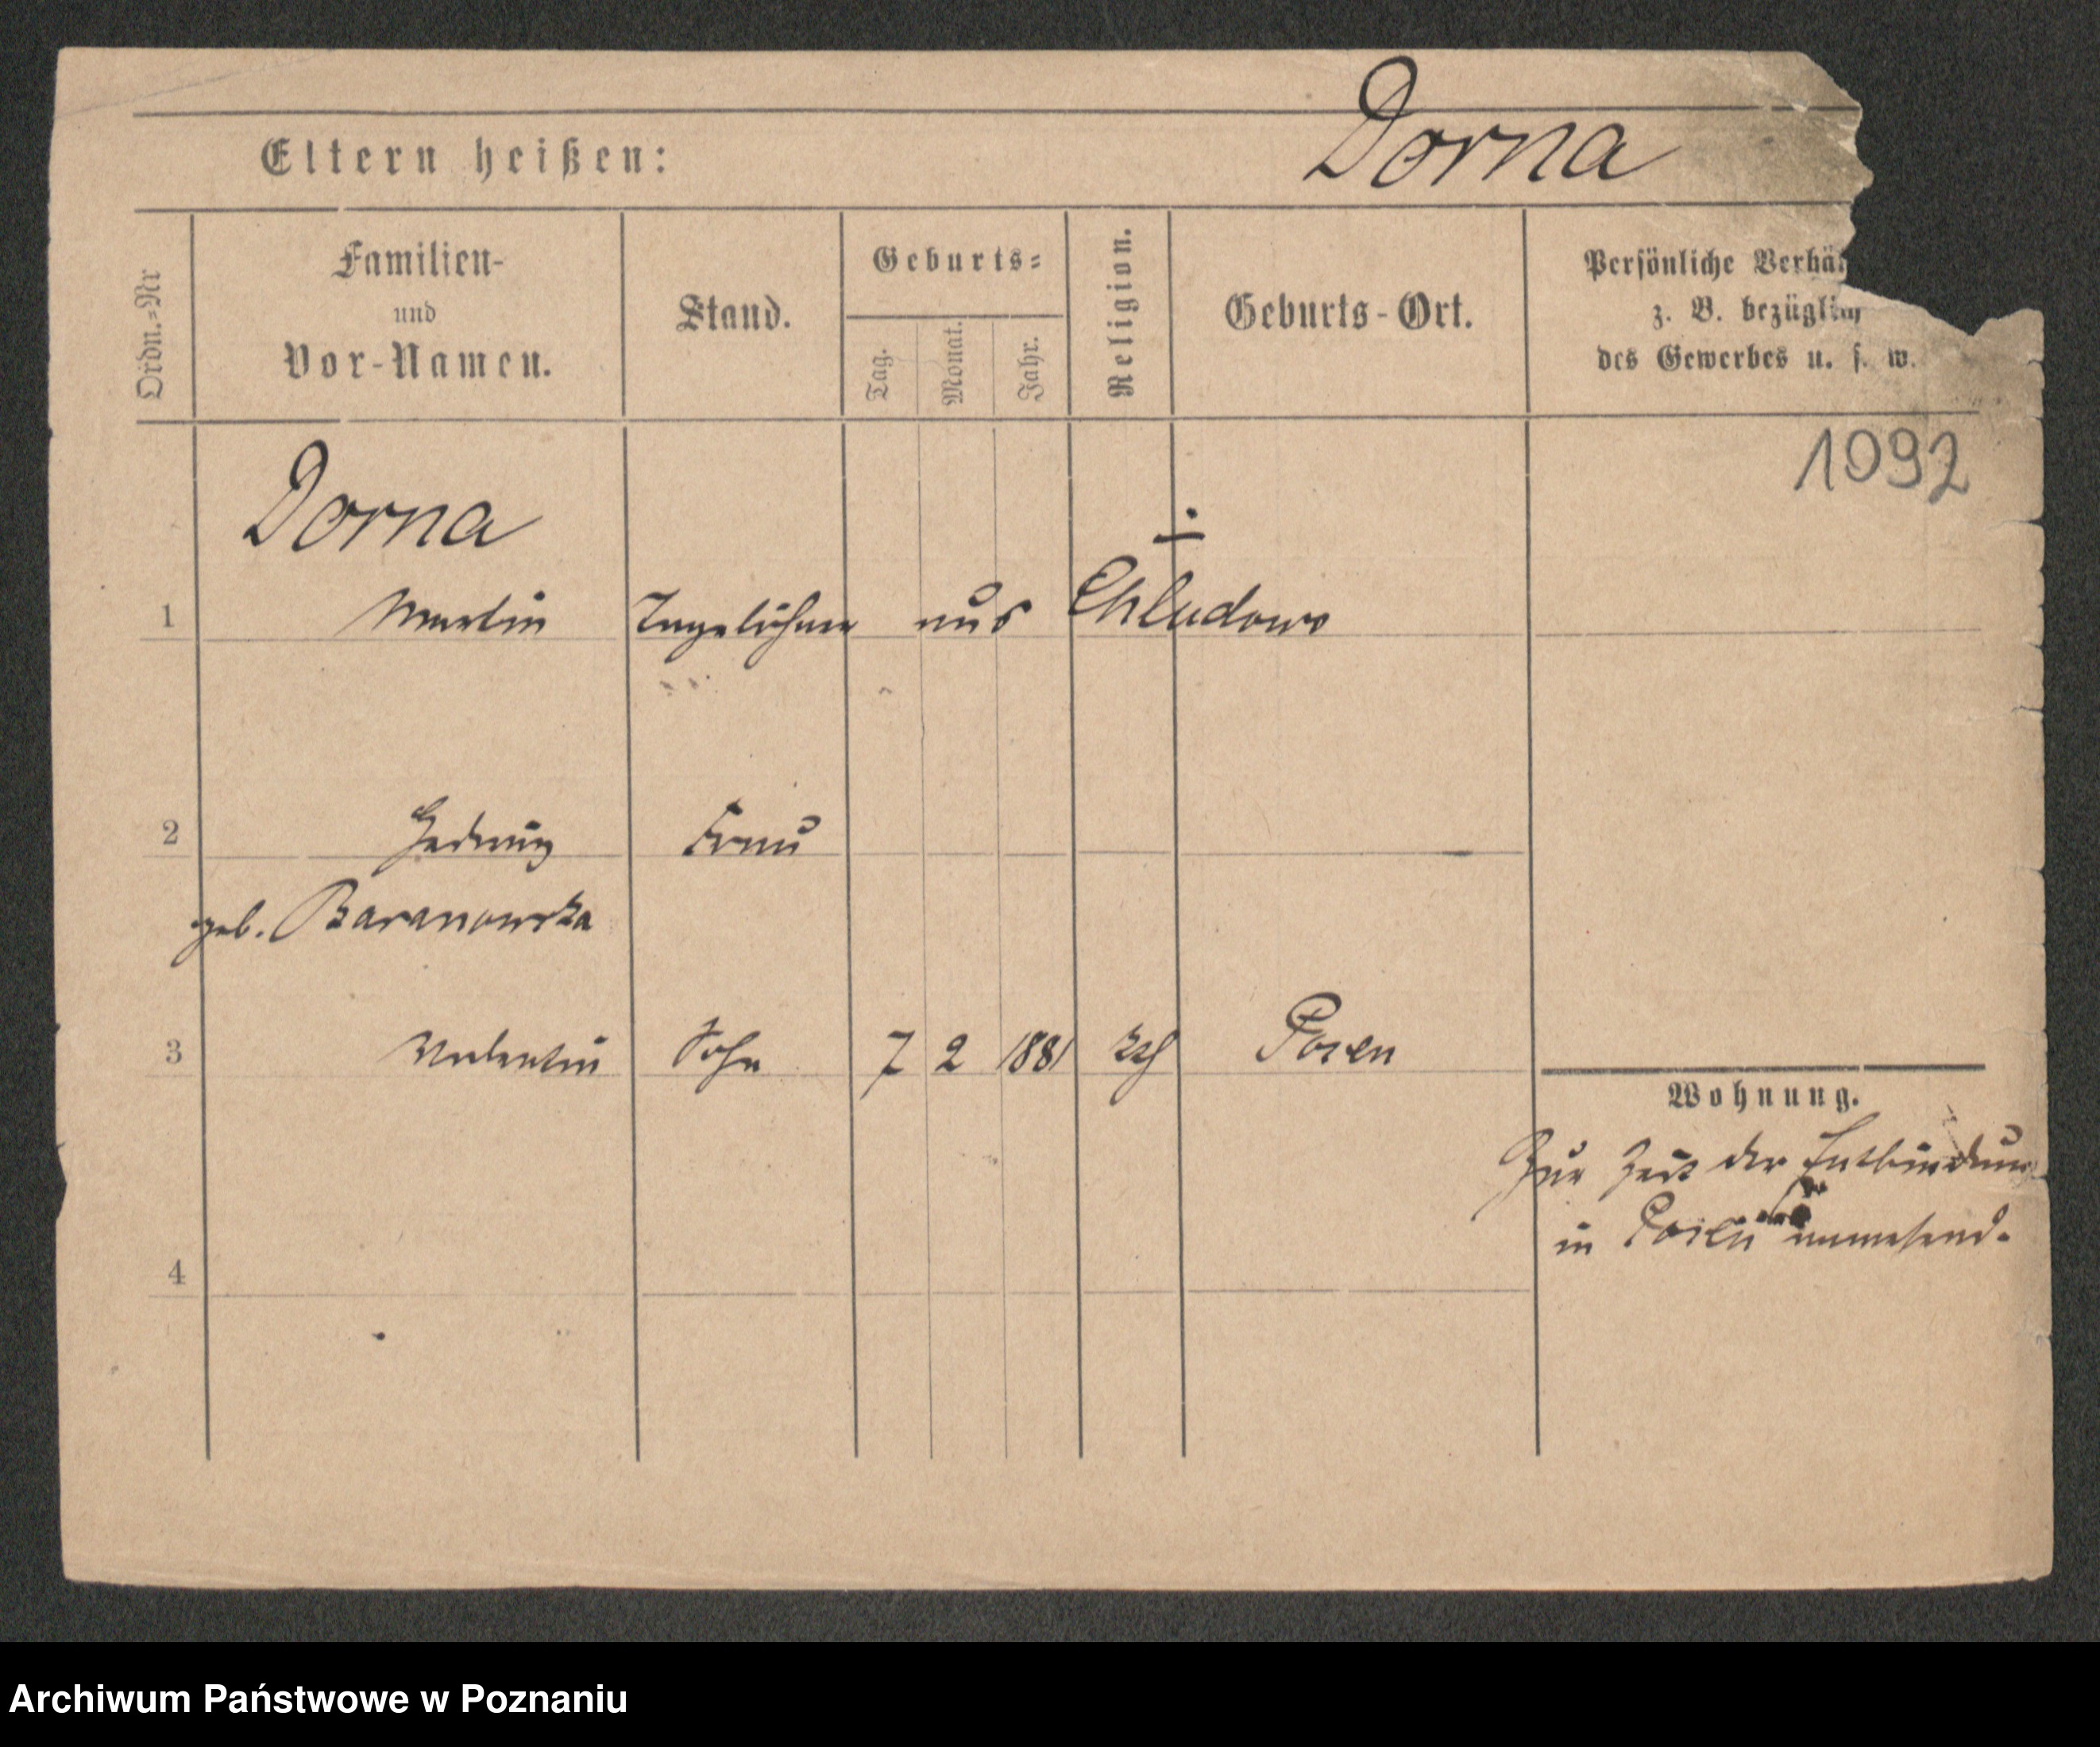 Dorna
Eltern heißen:
Ordn.=Nr
Familien-
und
Vor-Namen.
Stand.
Geburts=
Tag.
Monat.
Jahr.
Religion.
Geburts-Ort.
Persönliche Verhäl
z. B. bezüglich
des Gewerbes u. s. w.
1092
Dorna
1 Martin Tagelöhner aus Chludowo
2 Hedwig Frau
geb. Baranowska
3 Valentin Sohn 7 2 1881 kth Posen
Wohnung.
Zur Zeit der Entbindung
in Posen anwesend.
4
Archiwum Państwowe w Poznaniu